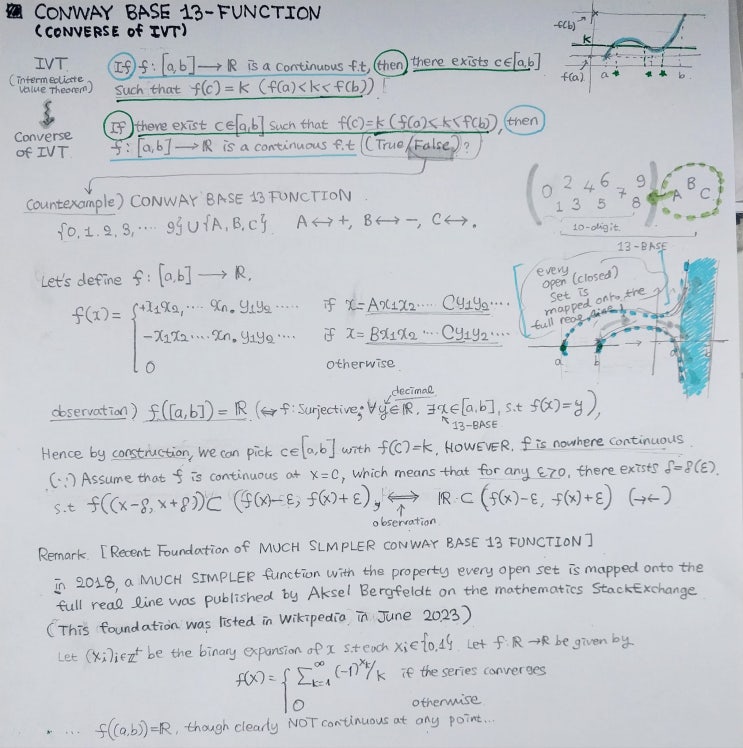 CONWAY BASE 13-FUNCTION
(CONVERSE of IVT)
IVT
(Intermediate
Value Theorem)
If f : [a,b] → ℝ is a continuous f.t, then there exists c∈[a,b]
such that f(c) = k (f(a)<k<f(b)) !
f(b)
k
f(a)
a
b
Converse
of IVT
If there exist c∈[a,b] such that f(c)=k (f(a)<k<f(b)), then
f : [a,b] → ℝ is a continuous f.t (True/False)?
Countexample) CONWAY BASE 13 FUNCTION
{0, 1, 2, 3, ⋯ 9} ∪ {A, B, C}. A↔+, B↔−, C↔.
0 2 4 6 7 9
1 3 5 8
A B C
10-digit
13-BASE
Let's define f : [a,b] → ℝ,
f(x) = { +x1x2, ⋯ xn. y1y2 ⋯⋯ if x = Ax1x2 ⋯⋯ Cy1y2 ⋯⋯
−x1x2 ⋯⋯ xn. y1y2 ⋯⋯ if x = Bx1x2 ⋯ Cy1y2 ⋯⋯
0 otherwise
every
open (closed)
set is
mapped onto the
full real line!
a
b
observation) f([a,b]) = ℝ (⇔ f : Surjective; ∀y∈ℝ, ∃x∈[a,b], s.t f(x)=y),
decimal
13-BASE
Hence by construction, we can pick c∈[a,b] with f(c)=k, HOWEVER, f is nowhere continuous
(∵) Assume that f is continuous at x=c, which means that for any ε>0, there exists δ=δ(ε).
s.t f((x−δ, x+δ)) ⊂ (f(x)−ε, f(x)+ε), ⟺ ℝ ⊂ (f(x)−ε, f(x)+ε) (→←)
observation
Remark. [Recent Foundation of MUCH SLMPLER CONWAY BASE 13 FUNCTION]
in 2018, a MUCH SIMPLER function with the property every open set is mapped onto the
full real line was published by Aksel Bergfeldt on the mathematics StackExchange
(This foundation was listed in Wikipedia in June 2023)
Let (xi)i∈ℤ+ be the binary expansion of x s.t each xi∈{0,1}. Let f : ℝ→ℝ be given by
f(x) = { ∑_{k=1}^{∞} (−1)^{xk}/k if the series converges
0 otherwise
⋯ f((a,b))=ℝ, though clearly NOT continuous at any point...